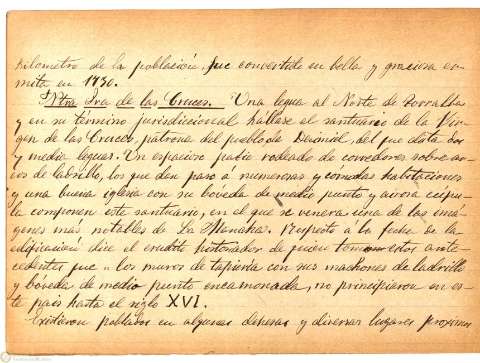 kilometro de la población, fue convertido en bella y graciosa er-
mita en 1730.
Ntra Sra de las Cruces. Una legua al Norte de Torralba
y en su término jurisdiccional hállase el santuario de la Vir-
gen de las Cruces, patrona del pueblo de Daimiel, del que dista dos
y media leguas. Un espacioso patio rodeado de corredores sobre ar-
cos de ladrillo, los que dan paso a numerosas y comodas habitaciones
y una buena iglesia con su bóveda de medio punto y airosa cúpu-
la componen este santuario, en el que se venera una de las imá-
genes más notables de La Mancha. Respecto á la fecha de la
edificación dice el erudito historiador de quien tomamos estos ante-
cedentes que "los muros de tapiería con sus machones de ladrillo
y bóveda de medio punto encamonada, no principiaron en es-
te pais hasta el siglo XVI.
Existieron poblados en algunas dehesas y diversos lugares proximos